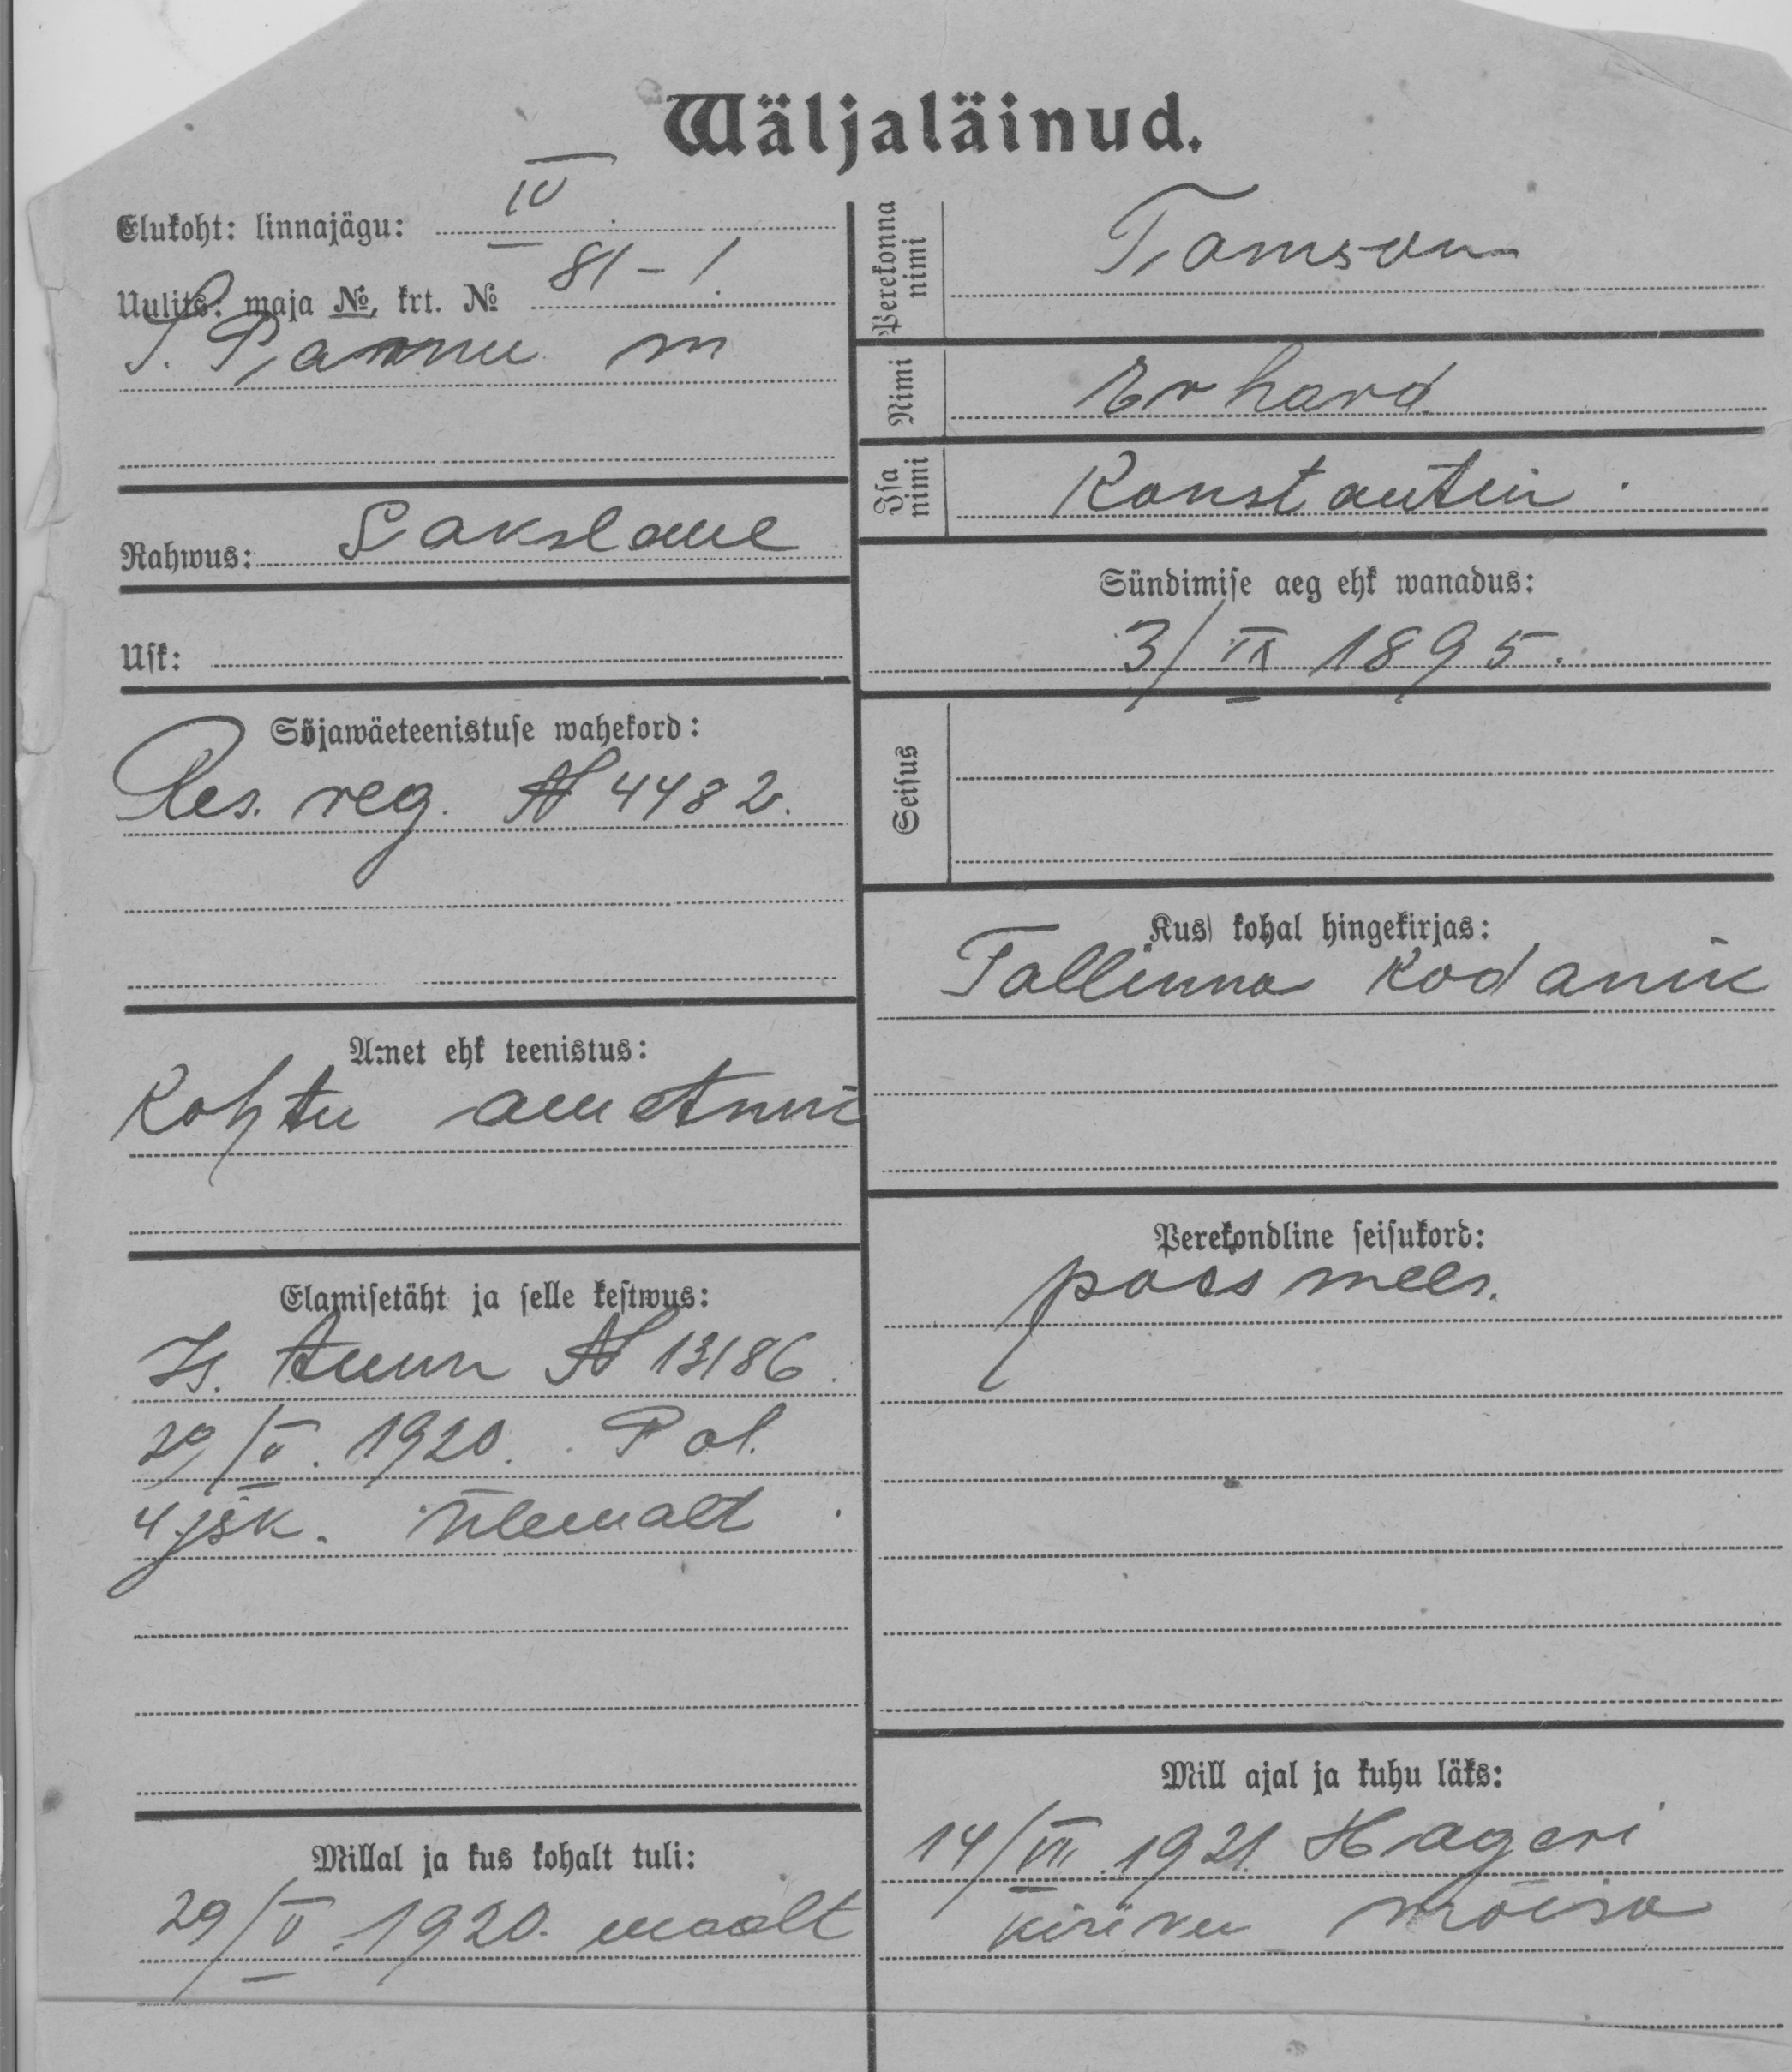 Wäljaläinud.
Elukoht: linnajägu: IV
Uulits: maja №, krt. № 81-1.
S. Pärnu m
Rahwus: Sakslane
Usk:
Sõjawäeteenistuse wahekord:
Res. reg. N 4482.
Amet ehk teenistus:
Kohtu ametnik
Elamisetäht ja selle kestwus:
Is. tunn N 13186.
29/V. 1920. Pol.
4 jsk. ülemalt
Millal ja kus kohalt tuli:
29/V. 1920. maalt
Perekonna nimi Tamson
Nimi Erhard
Isa nimi Konstantin.
Sündimise aeg ehk wanadus:
3/IX 1895.
Seisus
Kus kohal hingekirjas:
Tallinna Kodanik
Perekondline seisukord:
poissmees.
Mill ajal ja kuhu läks:
14/VII. 1921. Hageri
kiriku mõisa